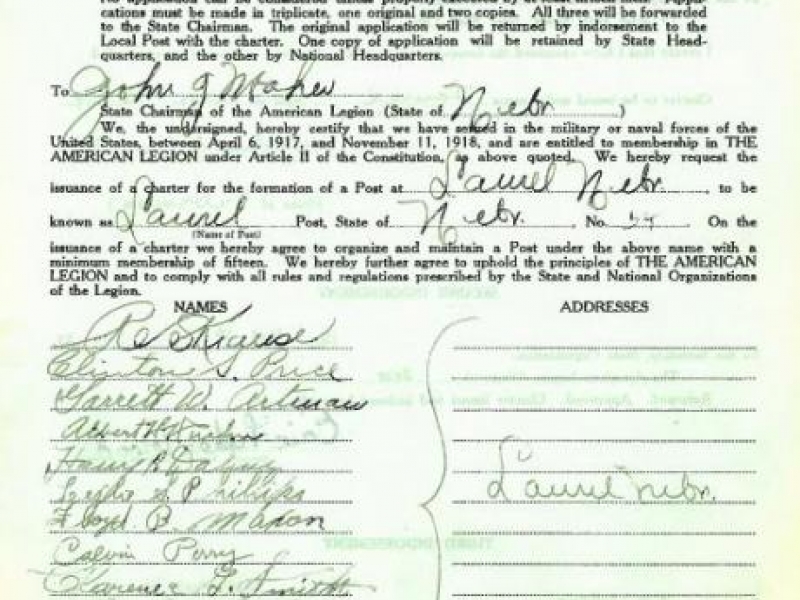 No application can be considered unless properly executed by at least fifteen men. Appli-
cations must be made in triplicate, one original and two copies. All three will be forwarded
to the State Chairman. The original application will be returned by indorsement to the
Local Post with the charter. One copy of application will be retained by State Head-
quarters, and the other by National Headquarters.
To John G Maher
State Chairman of the American Legion (State of Nebr. )
We, the undersigned, hereby certify that we have served in the military or naval forces of the
United States, between April 6, 1917, and November 11, 1918, and are entitled to membership in THE
AMERICAN LEGION under Article II of the Constitution, as above quoted. We hereby request the
issuance of a charter for the formation of a Post at Laurel Nebr. , to be
known as Laurel Post, State of Nebr. No. 54 On the
(Name of Post)
issuance of a charter we hereby agree to organize and maintain a Post under the above name with a
minimum membership of fifteen. We hereby further agree to uphold the principles of THE AMERICAN
LEGION and to comply with all rules and regulations prescribed by the State and National Organizations
of the Legion.
NAMES ADDRESSES
Clinton S. Price
Garrett W. Artman
Albert H
Harry
S Philips
Laurel Nebr.
Floyd B. Mason
Calvin Perry
Clarence L. Smith